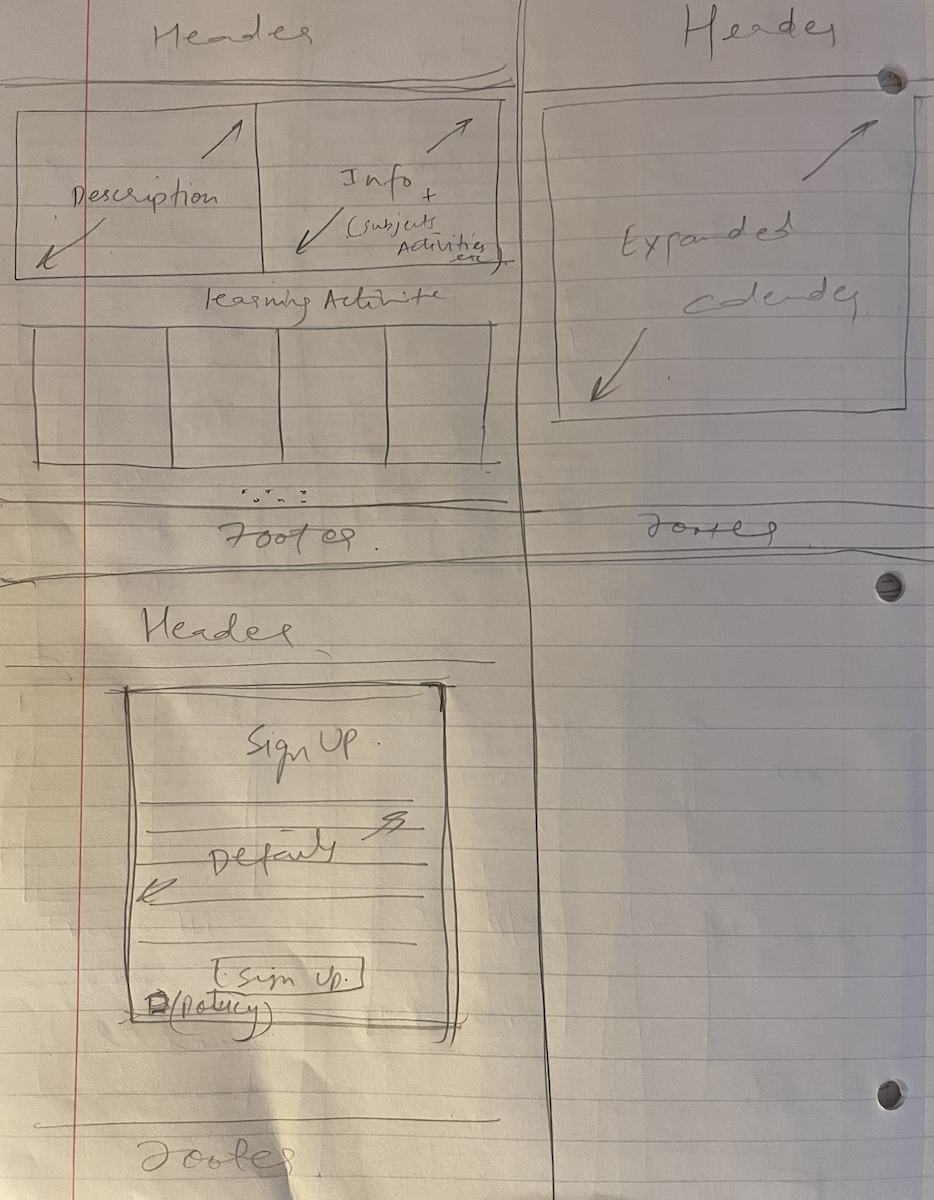 Header
Description
Info
+
(subjects
Activities
etc)
learning Activite
Footer.
Header
Expanded
Calender
Footer
Header
Sign UP.
Details
Sign Up.
(policy)
Footer